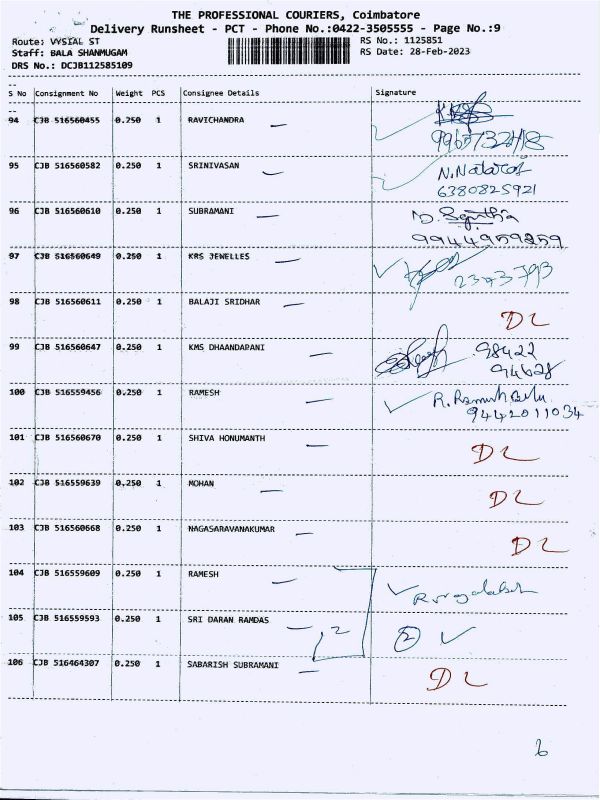 THE PROFESSIONAL COURIERS, Coimbatore
Delivery Runsheet - PCT - Phone No.:0422-3505555 - Page No.:9
Route: VYSIAL ST
RS No.: 1125851
Staff: BALA SHANMUGAM
RS Date: 28-Feb-2023
DRS No.: DCJB112585109
--
S No Consignment No Weight PCS Consignee Details Signature
--
94 CJB 516560455 0.250 1 RAVICHANDRA
95 CJB 516560582 0.250 1 SRINIVASAN
N.Nataraj
6380825921
96 CJB 516560610 0.250 1 SUBRAMANI
9944959259
97 CJB 516560649 0.250 1 KRS JEWELLES
98 CJB 516560611 0.250 1 BALAJI SRIDHAR
DL
99 CJB 516560647 0.250 1 KMS DHAANDAPANI
98422
94628
100 CJB 516559456 0.250 1 RAMESH
9442011034
101 CJB 516560670 0.250 1 SHIVA HONUMANTH
DL
102 CJB 516559639 0.250 1 MOHAN
DL
103 CJB 516560668 0.250 1 NAGASARAVANAKUMAR
DL
104 CJB 516559609 0.250 1 RAMESH
105 CJB 516559593 0.250 1 SRI DARAN RAMDAS
2 2
106 CJB 516464307 0.250 1 SABARISH SUBRAMANI
DL